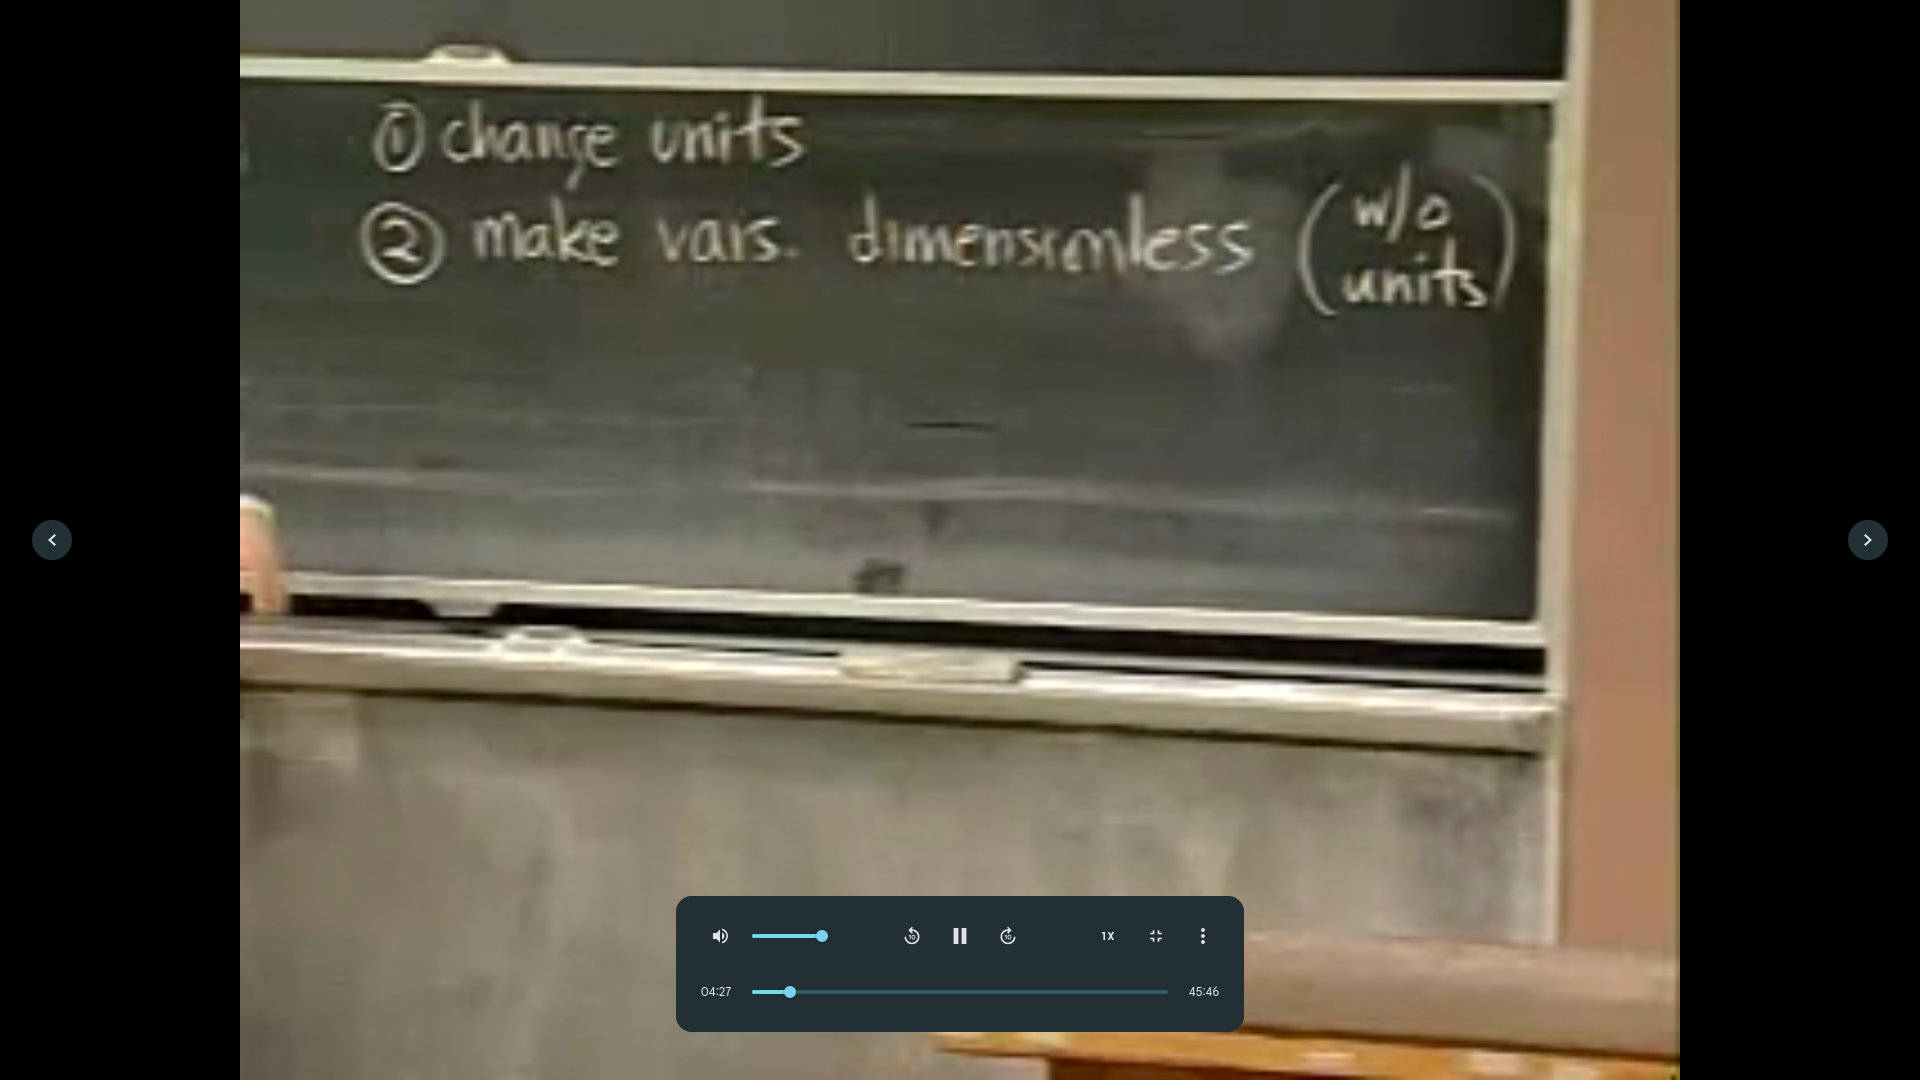 ① change units
② make vars. dimensionless (w/o units)
10
10
1X
04:27
45:46